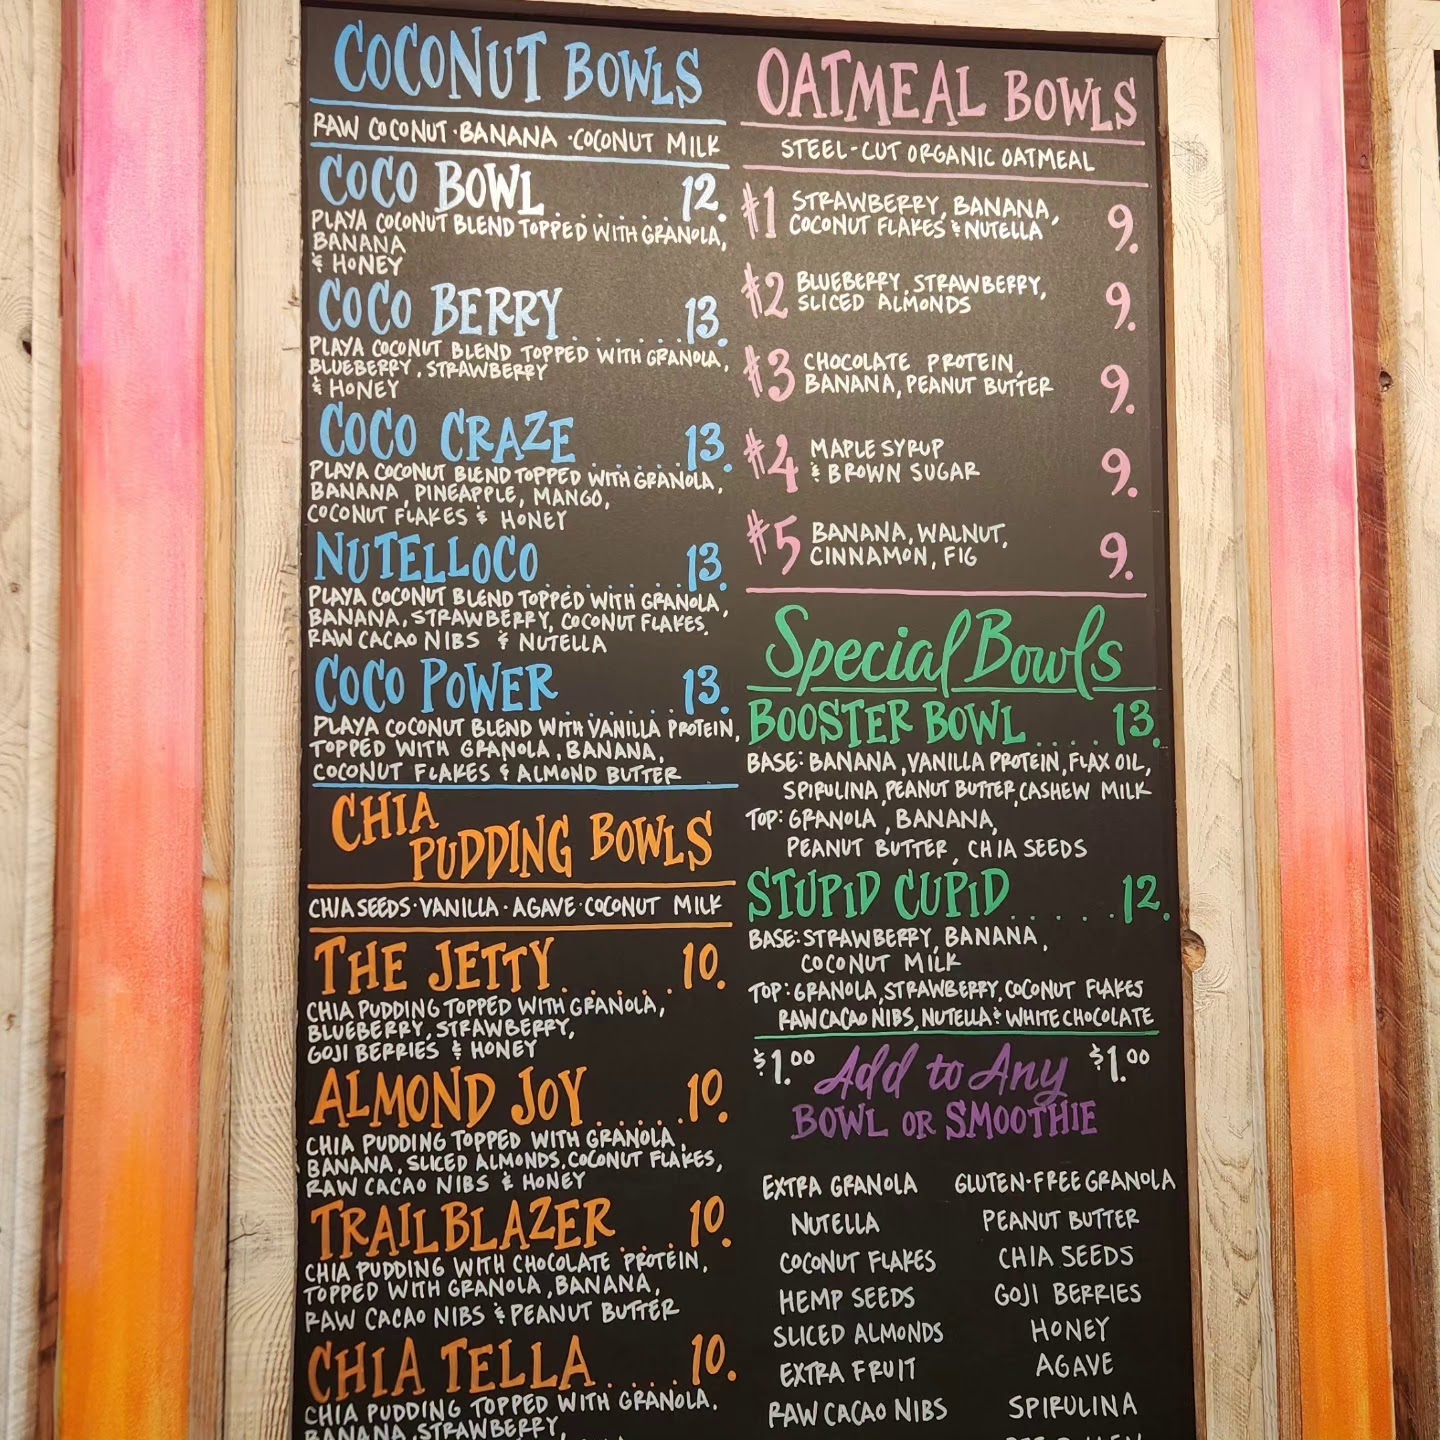 COCONUT BOWLS
RAW COCONUT · BANANA · COCONUT MILK
COCO BOWL . . . . . . 12.
PLAYA COCONUT BLEND TOPPED WITH GRANOLA,
BANANA
& HONEY
COCO BERRY . . . . . . 13.
PLAYA COCONUT BLEND TOPPED WITH GRANOLA,
BLUEBERRY, STRAWBERRY
& HONEY
COCO CRAZE . . . . . 13.
PLAYA COCONUT BLEND TOPPED WITH GRANOLA,
BANANA, PINEAPPLE, MANGO,
COCONUT FLAKES & HONEY
NUTELLOCO . . . . . . 13.
PLAYA COCONUT BLEND TOPPED WITH GRANOLA,
BANANA, STRAWBERRY, COCONUT FLAKES,
RAW CACAO NIBS & NUTELLA
COCO POWER . . . . . 13.
PLAYA COCONUT BLEND WITH VANILLA PROTEIN,
TOPPED WITH GRANOLA, BANANA,
COCONUT FLAKES & ALMOND BUTTER
CHIA
PUDDING BOWLS
CHIA SEEDS · VANILLA · AGAVE · COCONUT MILK
THE JETTY . . . . . 10.
CHIA PUDDING TOPPED WITH GRANOLA,
BLUEBERRY, STRAWBERRY,
GOJI BERRIES & HONEY
ALMOND JOY . . . . . 10.
CHIA PUDDING TOPPED WITH GRANOLA,
BANANA, SLICED ALMONDS, COCONUT FLAKES,
RAW CACAO NIBS & HONEY
TRAILBLAZER . . . . 10.
CHIA PUDDING WITH CHOCOLATE PROTEIN,
TOPPED WITH GRANOLA, BANANA,
RAW CACAO NIBS & PEANUT BUTTER
CHIA TELLA . . . . 10.
CHIA PUDDING TOPPED WITH GRANOLA,
BANANA, STRAWBERRY,
OATMEAL BOWLS
STEEL-CUT ORGANIC OATMEAL
#1 STRAWBERRY, BANANA, 9.
COCONUT FLAKES & NUTELLA
#2 BLUEBERRY, STRAWBERRY, 9.
SLICED ALMONDS
#3 CHOCOLATE PROTEIN, 9.
BANANA, PEANUT BUTTER
#4 MAPLE SYRUP 9.
& BROWN SUGAR
#5 BANANA, WALNUT, 9.
CINNAMON, FIG
Special Bowls
BOOSTER BOWL . . . . 13.
BASE: BANANA, VANILLA PROTEIN, FLAX OIL,
SPIRULINA, PEANUT BUTTER, CASHEW MILK
TOP: GRANOLA, BANANA,
PEANUT BUTTER, CHIA SEEDS
STUPID CUPID . . . . . 12.
BASE: STRAWBERRY, BANANA,
COCONUT MILK
TOP: GRANOLA, STRAWBERRY, COCONUT FLAKES
RAW CACAO NIBS, NUTELLA & WHITE CHOCOLATE
$1.00 Add to Any $1.00
BOWL OR SMOOTHIE
EXTRA GRANOLA GLUTEN-FREE GRANOLA
NUTELLA PEANUT BUTTER
COCONUT FLAKES CHIA SEEDS
HEMP SEEDS GOJI BERRIES
SLICED ALMONDS HONEY
EXTRA FRUIT AGAVE
RAW CACAO NIBS SPIRULINA